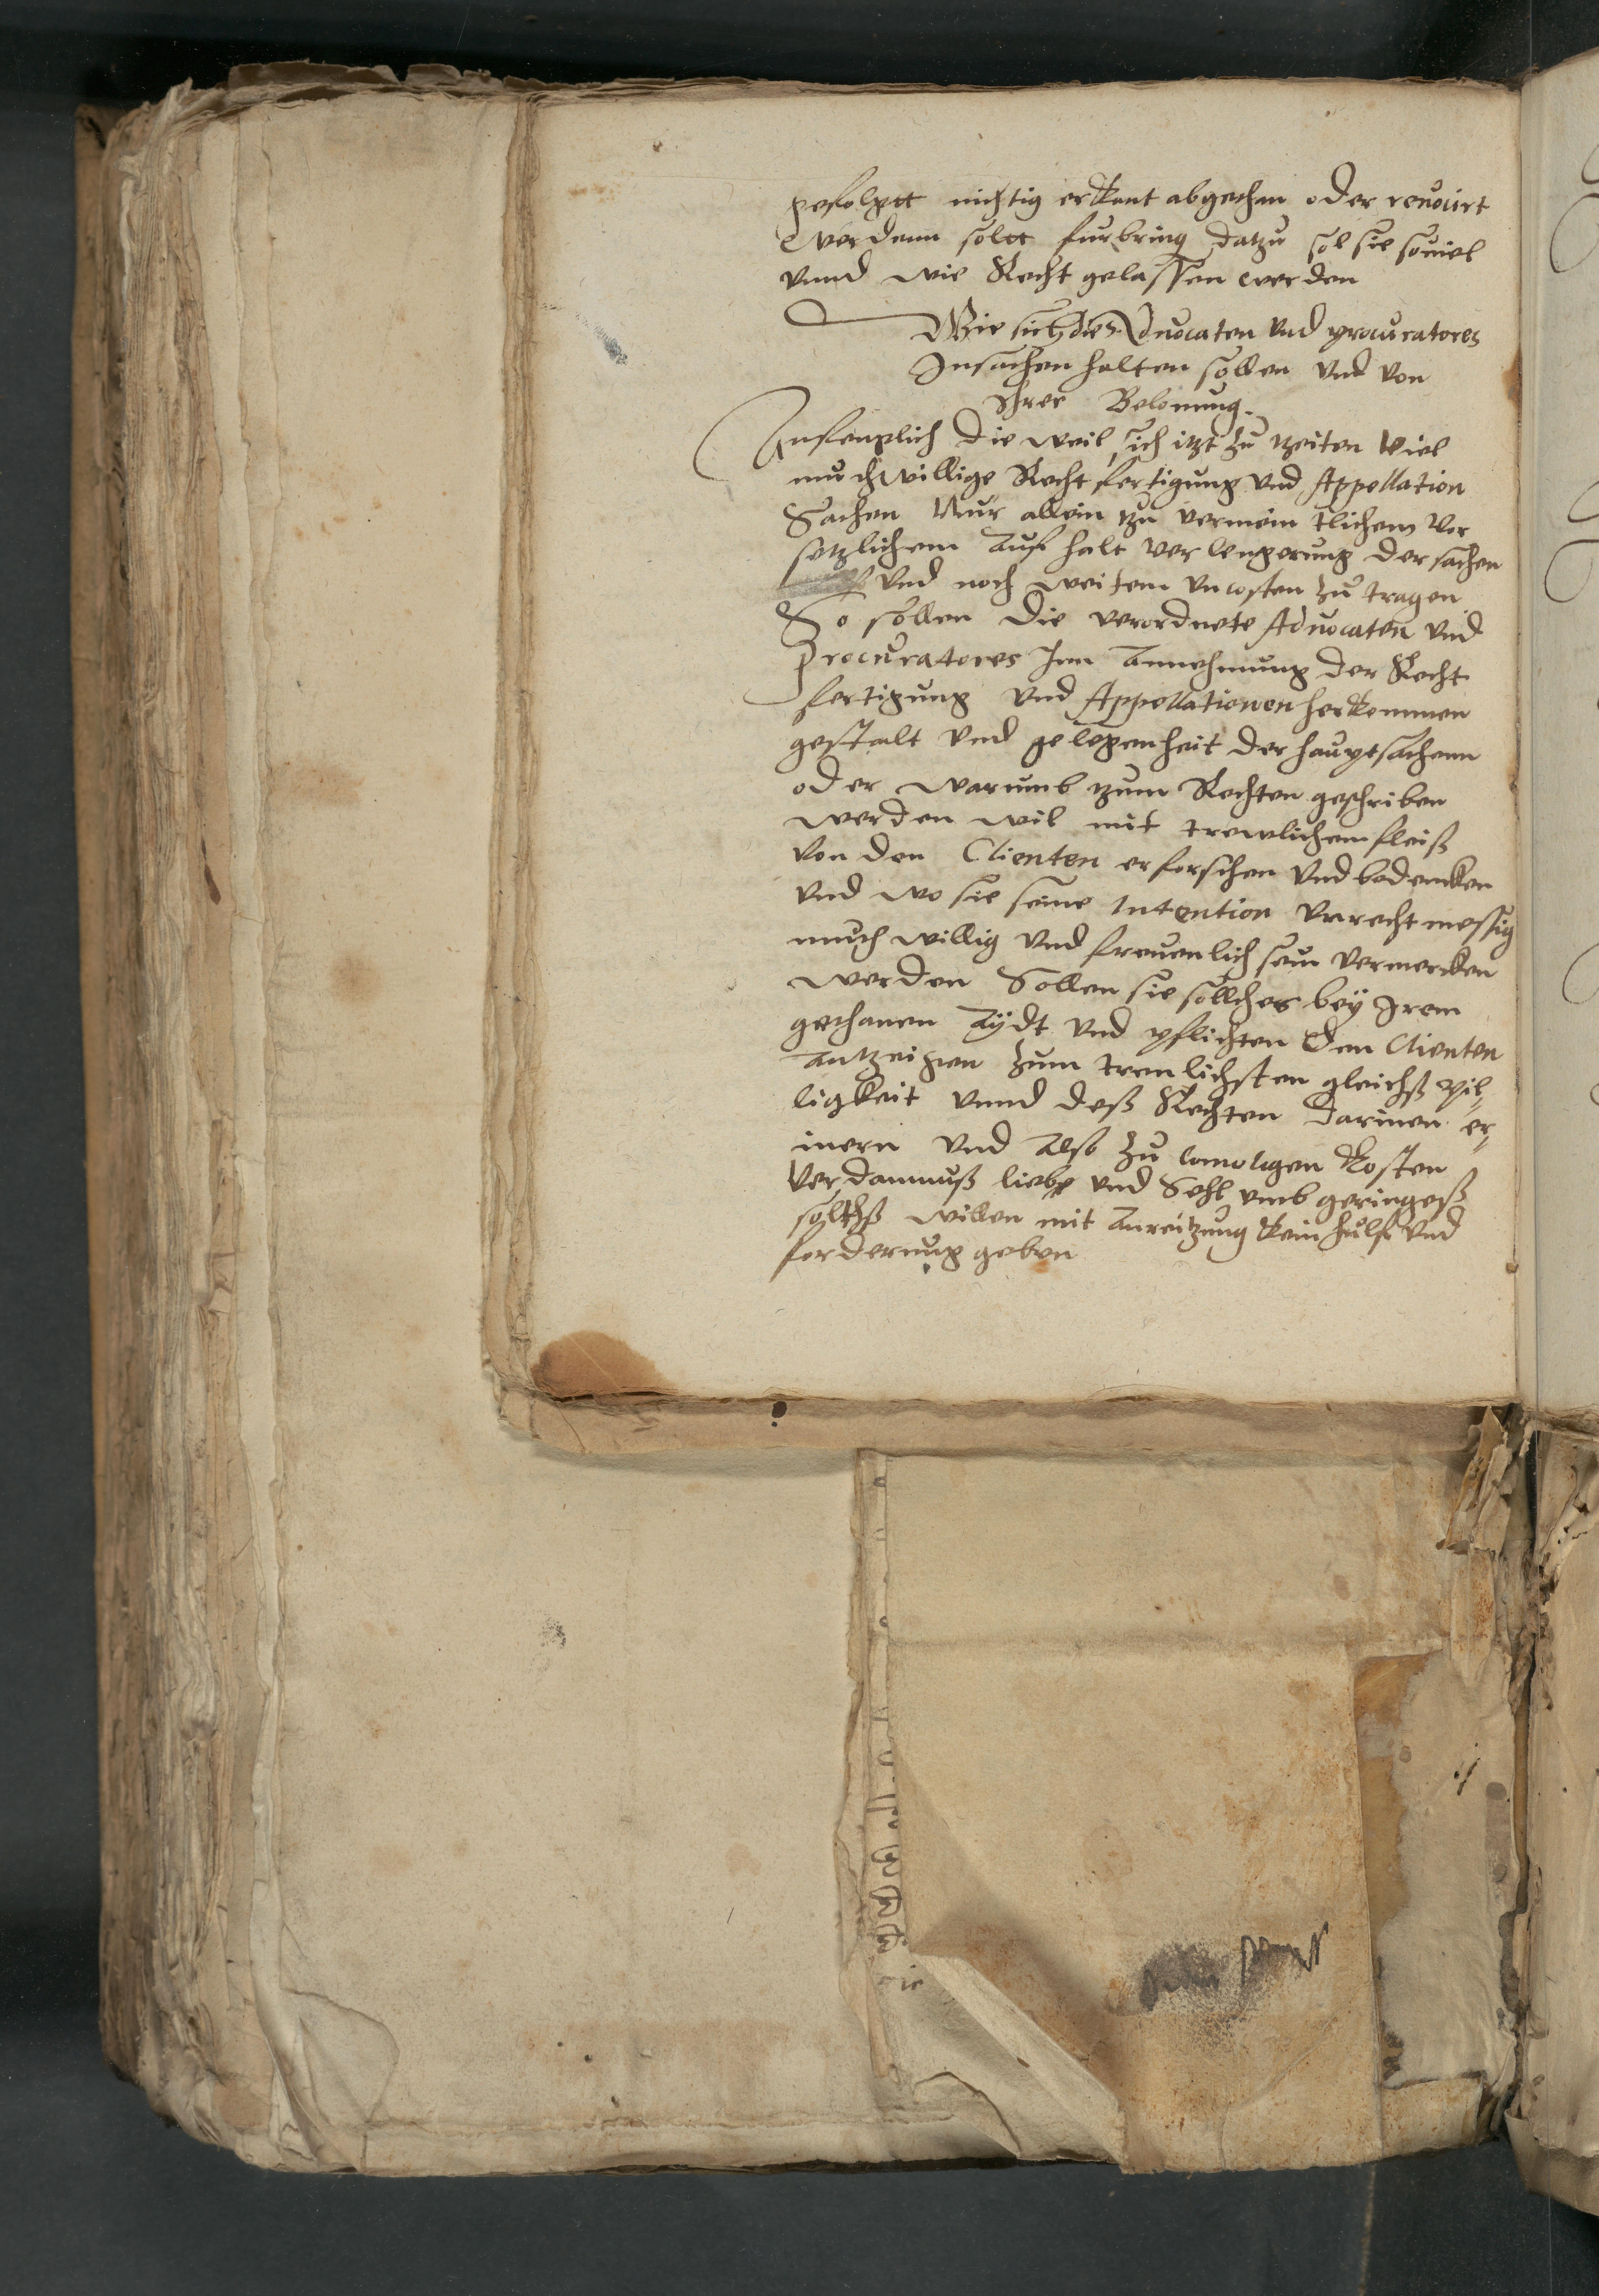 gefolgtt nichtig erkant abgethan oder revocirt
werdenn soltt furbring datzu sol sie souiel
vnnd wie Recht gelassen werden
Wie sich die Aduocaten vnd procuratores
In sachen halten sollen vnd von
Irer Belonung.
Anfenglich die weil sich itzt zu tzeiten viel
muthwillige Recht fertigung vnd Appellation
Sachen Nur allein zu vermeintlichem vor
setzlichem Auf halt verlengerung der sachen
vnd noch weitern vncosten zu tragen
So sollen die verordnete Aduocaten vnd
Procuratores Inn Annehmung der Recht
fertigung vnd Appellationen herkommen
gestalt vnd gelegenheit der hauptsachenn
oder warumb tzum Rechten geschriben
werden wil mit trewlichem fleiß
von den Clienten erforschen vnd bedencken
vnd wo sie seine Intention vnrechtmessig
muthwillig vnd freuenlich sein vermercken
werden Sollen sie sollches bey Irem
gethanen Aydt vnd pflichten den Clienten
Antzeigen zum trewlichsten gleichß pil-
ligkeit vnnd deß Rechten darinen er-
inern vnd Also zu kosten
verdamnuß liebe vnd Sehl vmb geringeß
soltß willen mit Anreitzung kein hulf vnd
forderung geben